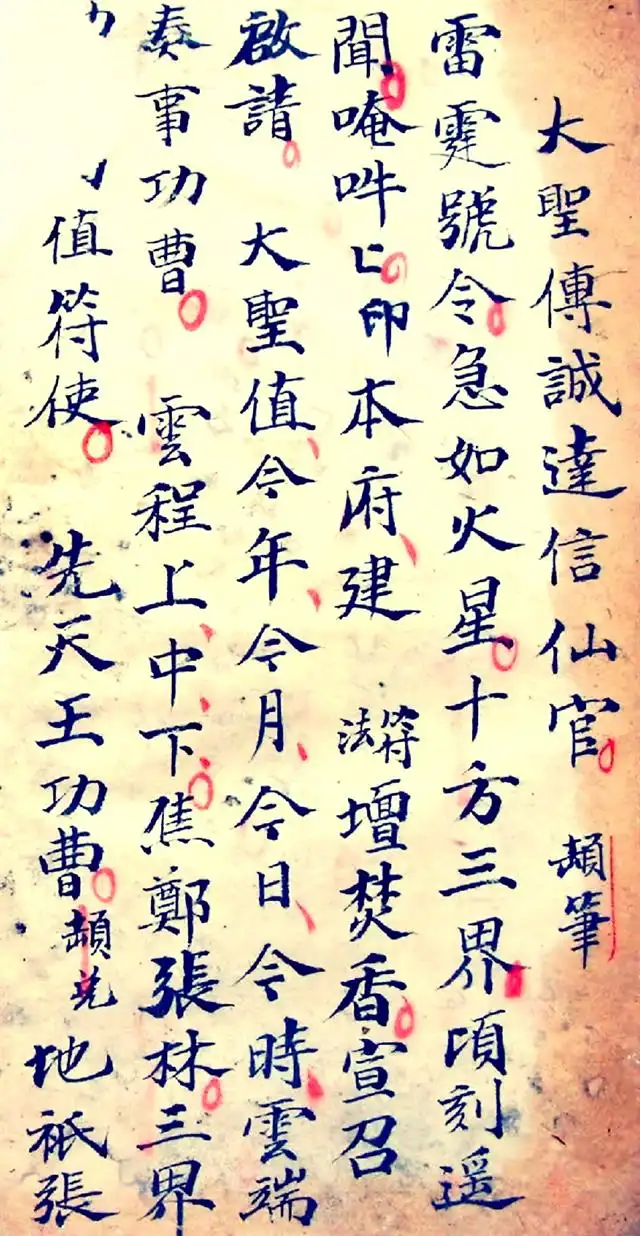 大聖傳誠達信仙官 頓筆
雷霆號令急如火星十方三界頃刻遥
聞唵吽 印本府建 符法壇焚香宣召
啟請 大聖值今年今月今日今時雲端
奏事功曹 雲程上中下焦鄭張林三界
值符使 先天王功曹 地祇張